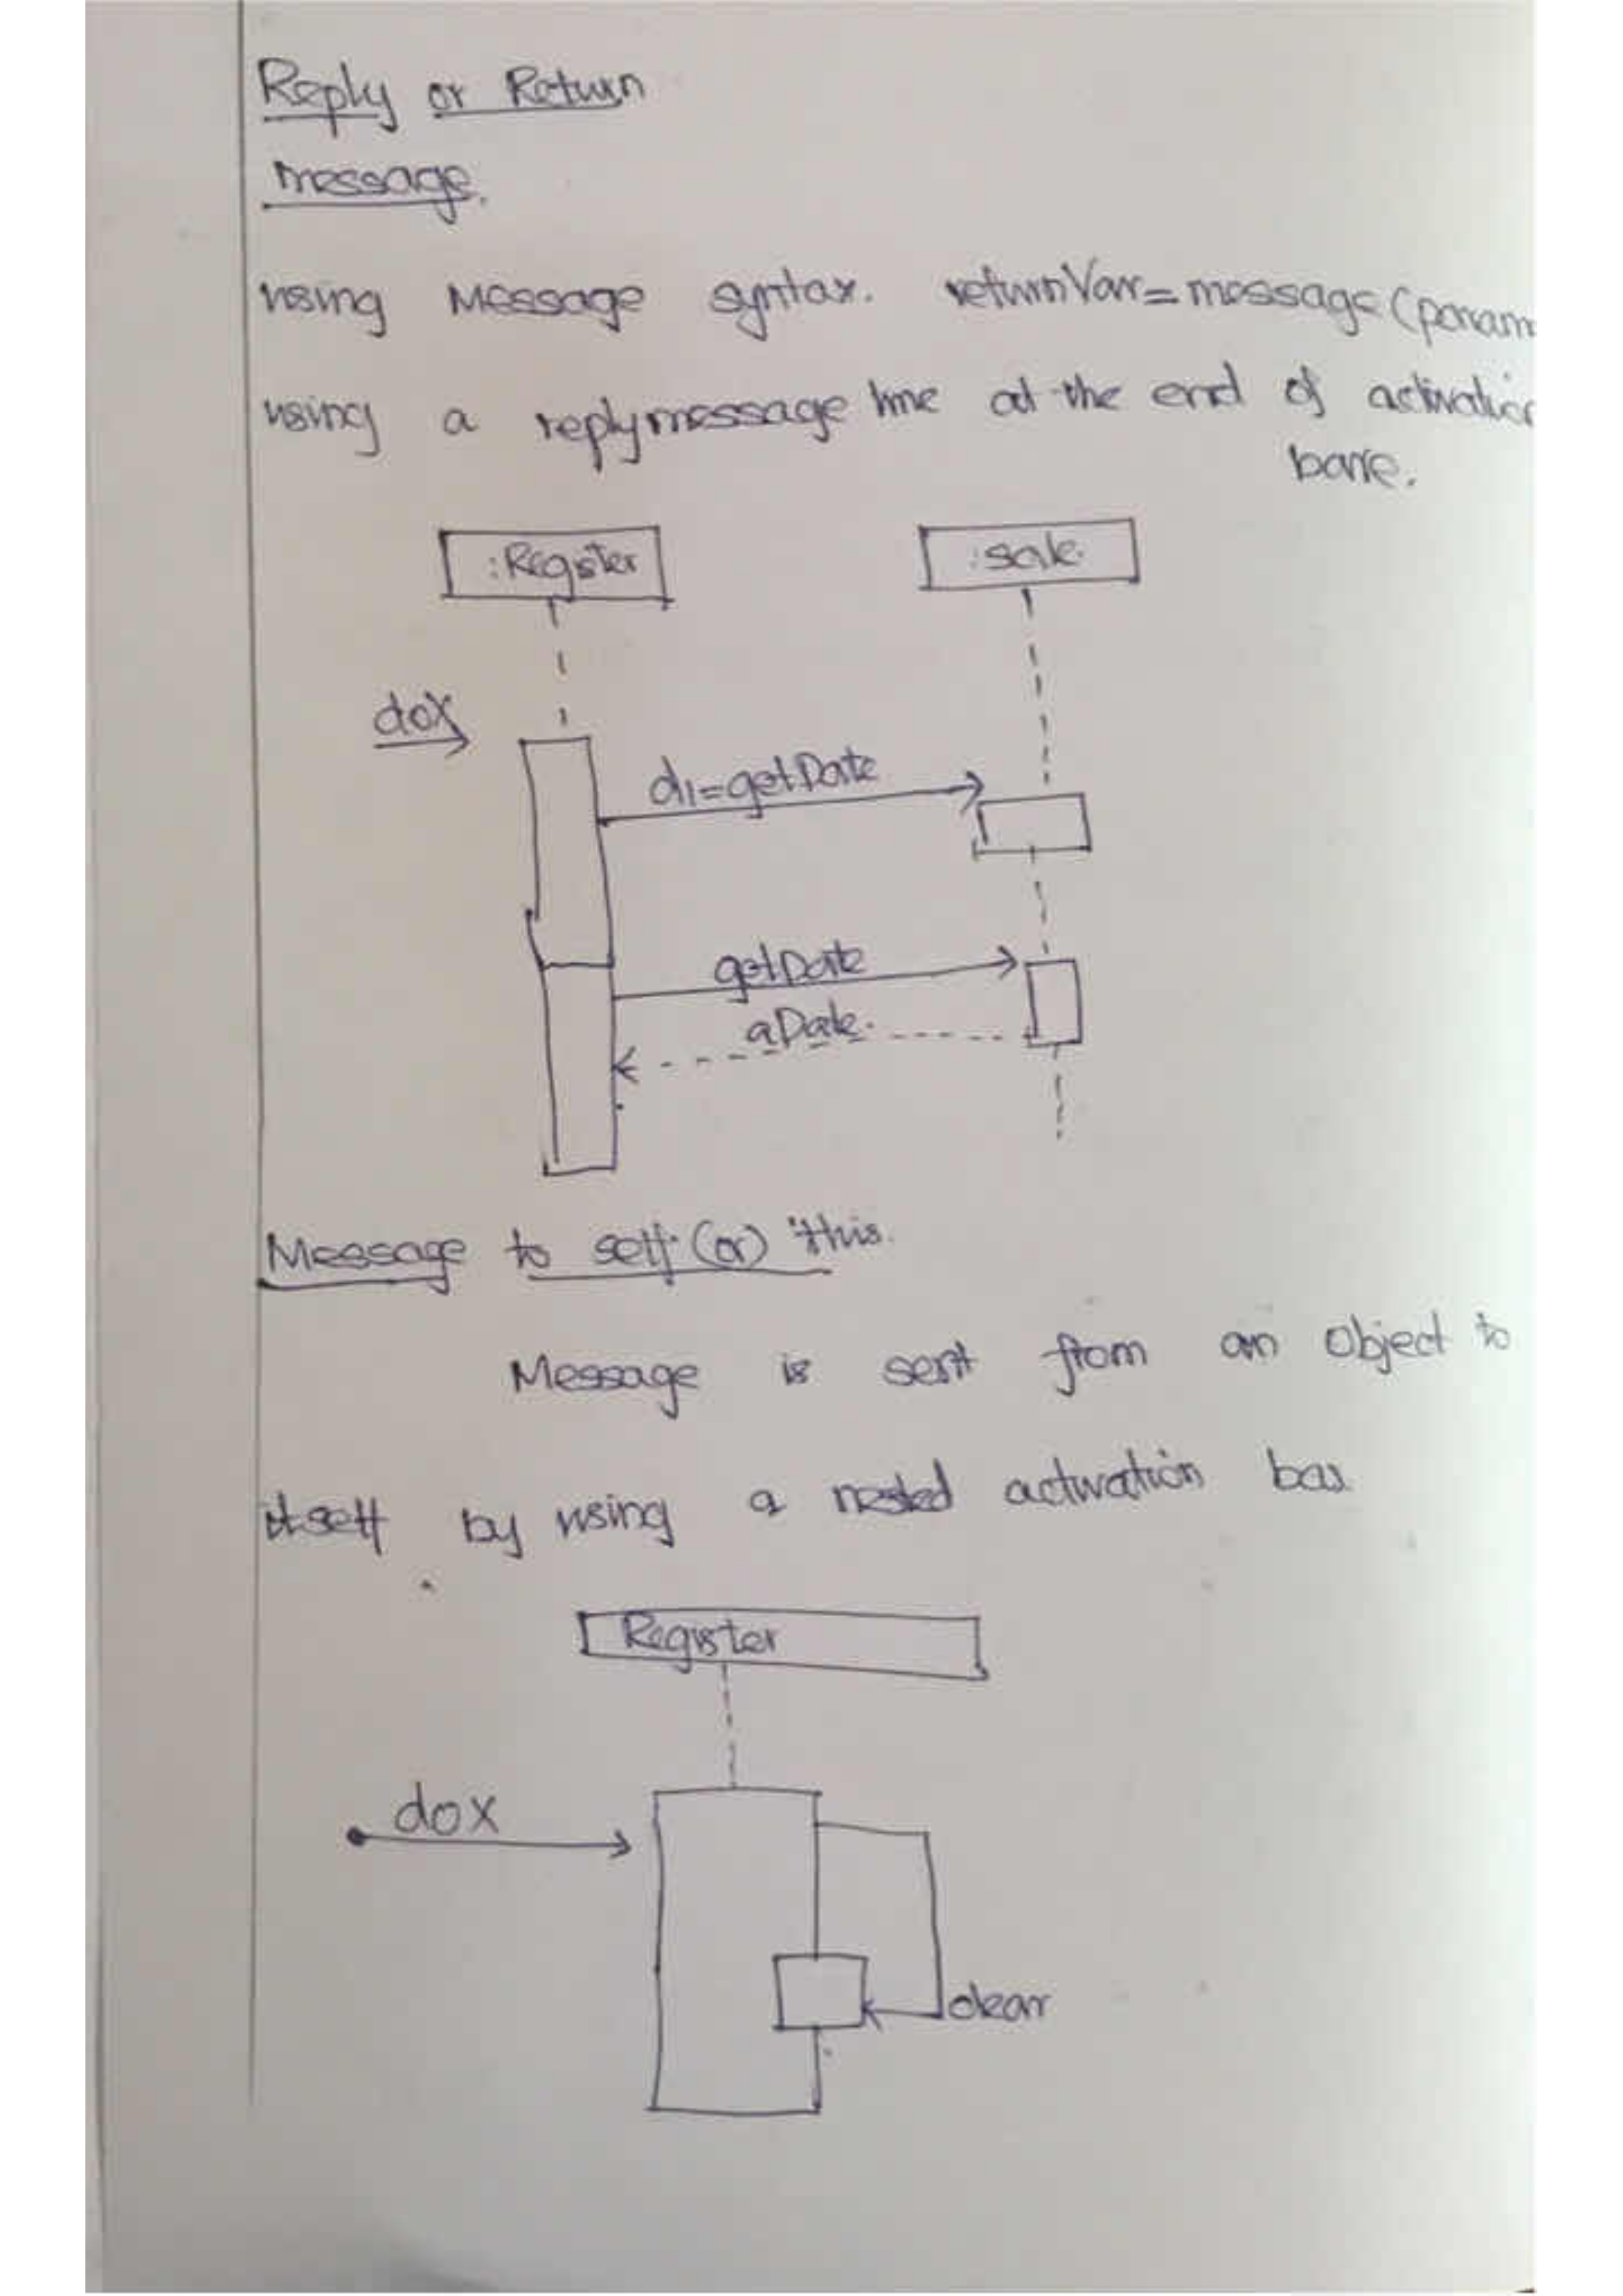 Reply or Return
message.
using Message syntax. returnVar=message (param
using a reply message line at the end of activation
barre.
:Register :sale.
dox
d1=getDate
getDate
aDate.
Message to self (or) 'this.
Message is sent from an object to
itself by using a nested activation bar
Register
dox
clear